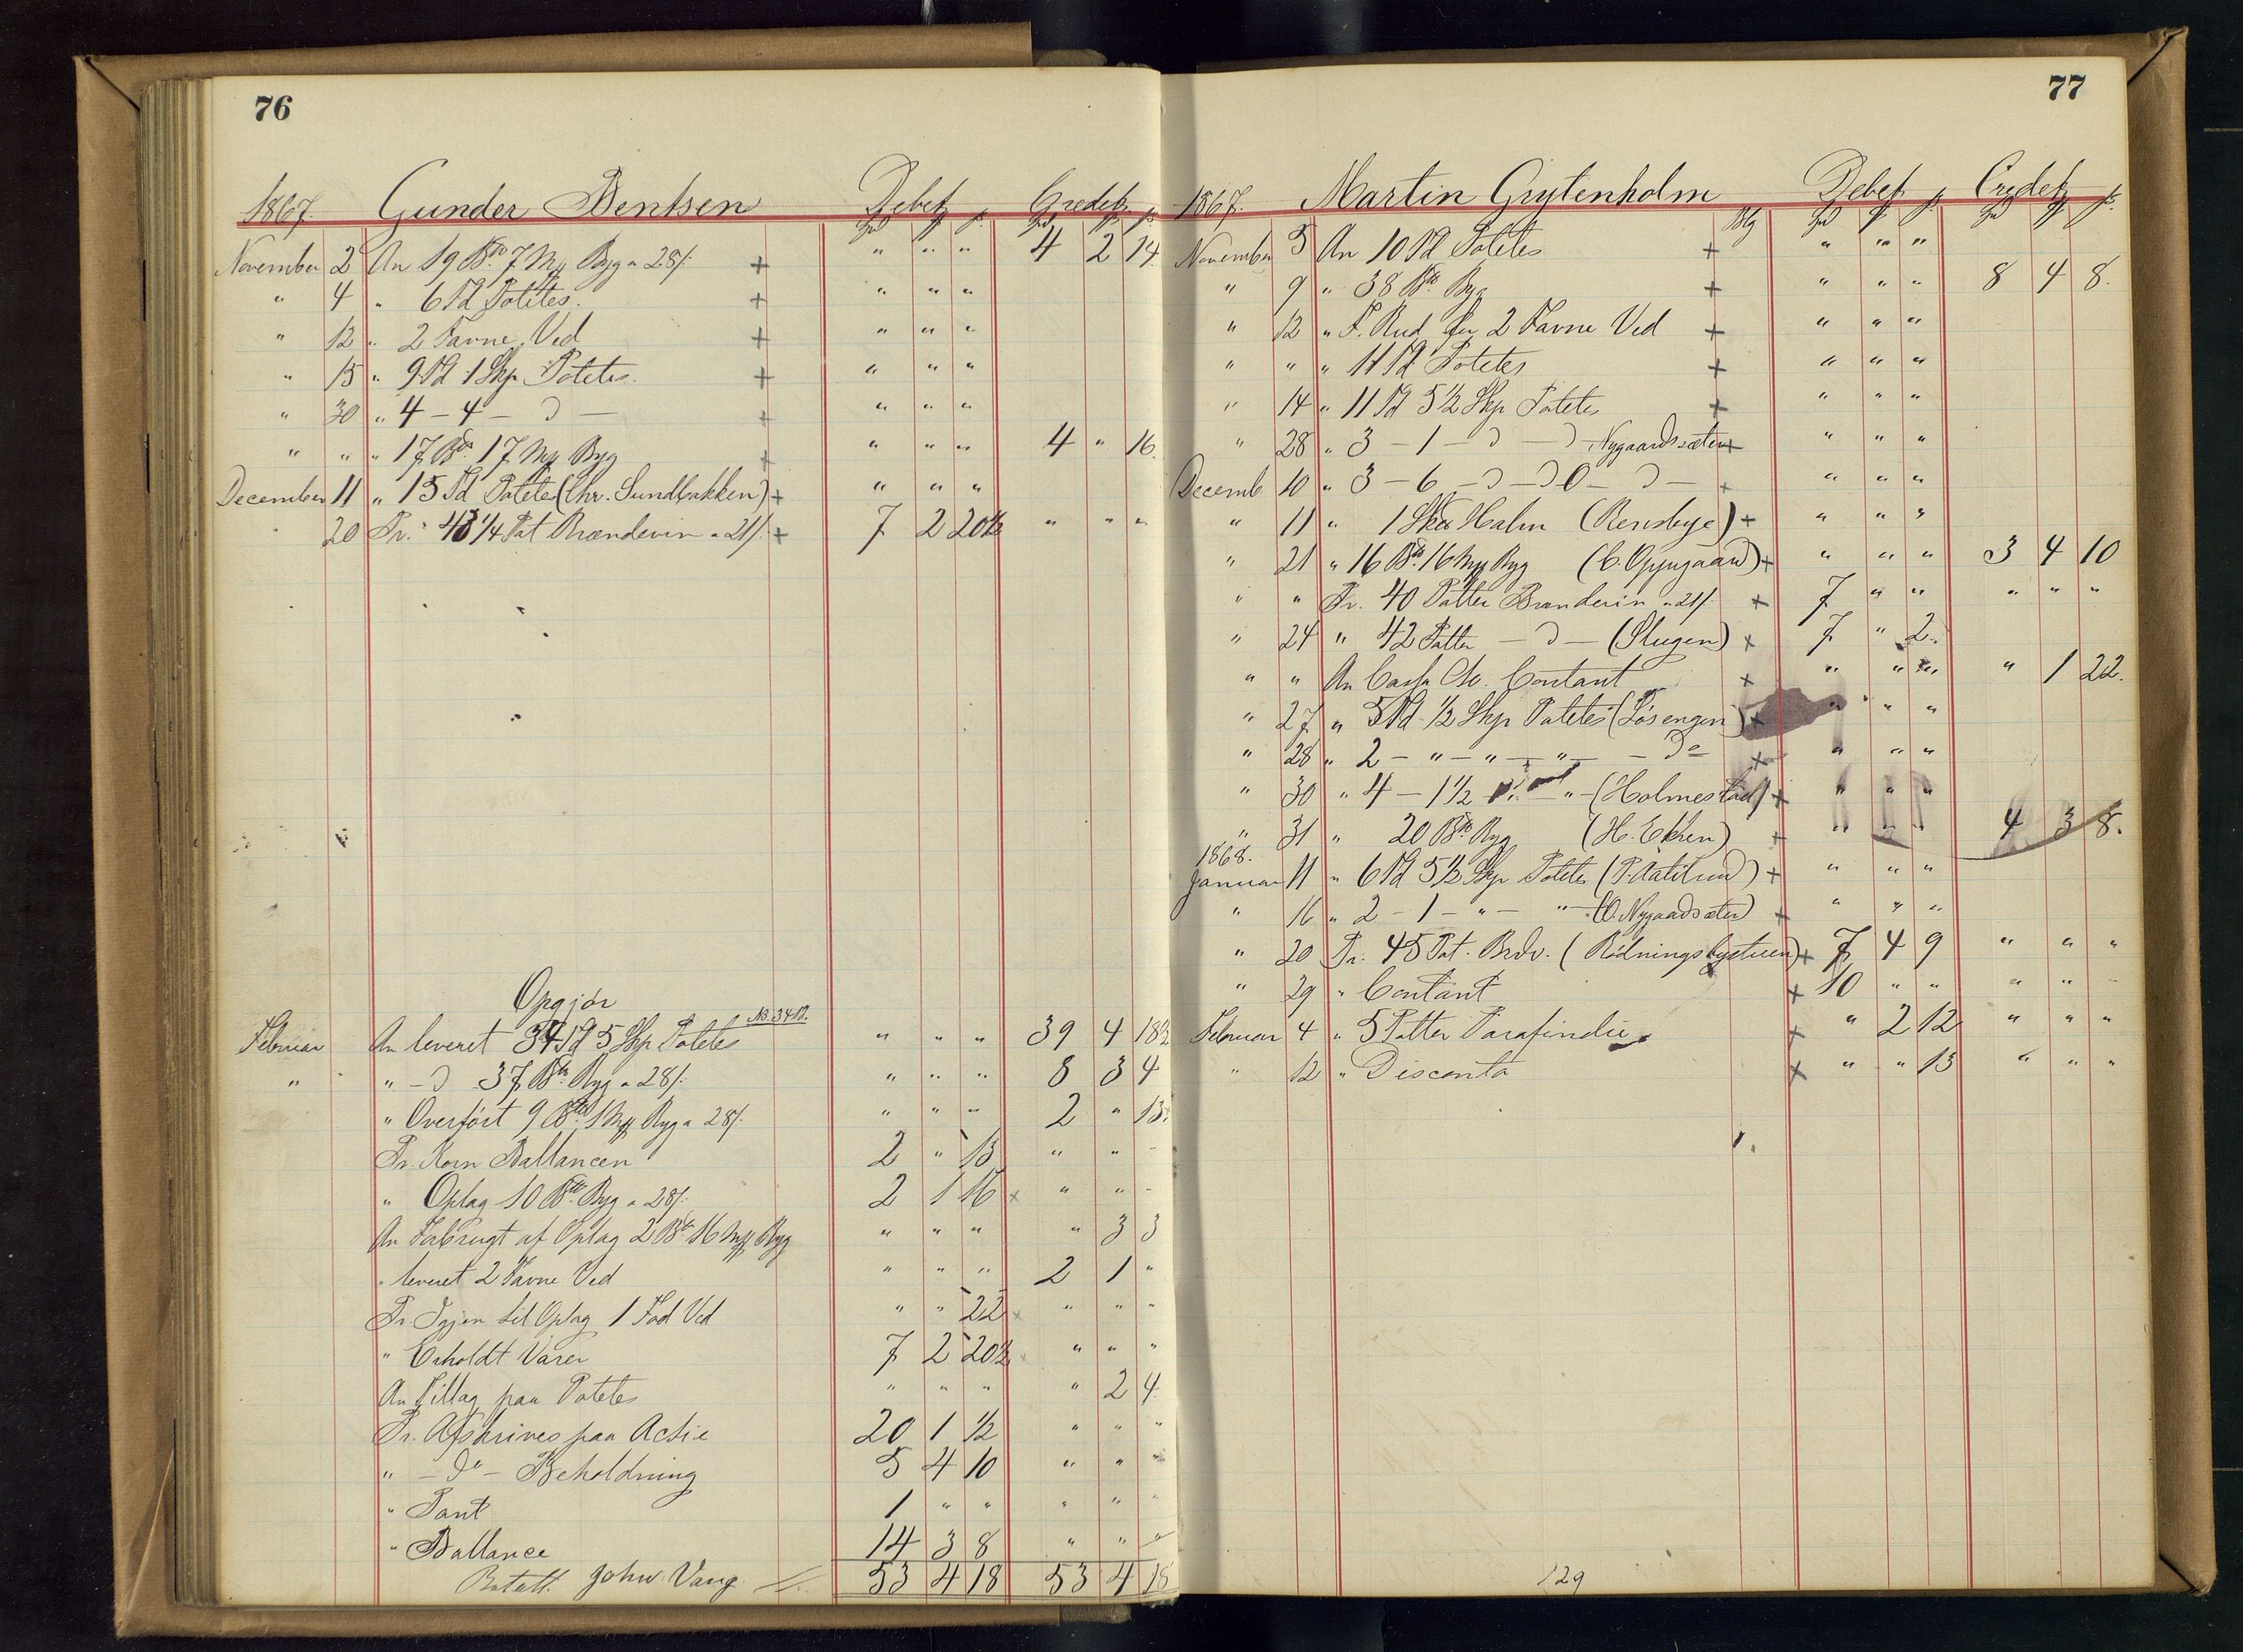 76
1867. Gunder Bentsen Debet Credet
November 2 An 19 Btr 7 Mk Byg a 28/: + " " " 4 2 14
" 4 " 6 Td Potetes. + " " "
" 12 " 2 Favne Ved + " " "
" 15 " 9 Td 1 Skp Potetes. + " " "
" 30 " 4 - 4 - D - + " " "
" " " 17 Btr 17 Mk Byg + " " " 4 " 16.
December 11 " 15 Td Potetes (Chr. Sundbakken) + " " "
20 Pr. 43 1/4 Pot Brændevin a 21/: + 7 2 20 1/2 " " "
Opgjör
Februar An leveret 34 Td 5 Skp Potetes NB. 34 Td. " " " 39 4 18 1/2
" " - D 37 Btr Byg a 28/: " " " 8 3 4
" Overfört 9 Btr 1 Mk Byg a 28/: " " " 2 " 13
Pr. Korn Ballancen 2 " 13 " " "
" Oplag 10 Btr Byg a 28/: 2 1 16 " " "
An Forbrugt af Oplag 2 Btr 16 Mk Byg " " " " 3 3
" leveret 2 Favne Ved " " " 2 1 "
Pr. Igjen til Oplag 1 Fod Ved " " 22 " " "
" Erholdt Varer 7 2 20 1/2 " " "
An Tillag paa Potetes " " " " 2 4
Pr. Afskrives paa Actie 20 1 1/2 " " "
" - Do - Beholdning 5 4 10 " " "
" Pant 1 " " " " "
" Ballance 14 3 8 " " "
Betalt John Vang 53 4 18 53 4 18
77
1867. Martin Grytenholm Debet Credet
November 5 An 10 Td Potetes + " " "
" 9 " 38 Btr Byg + " " " 8 4 8.
" 12 " F. Rud for 2 Favne Ved + " " "
" " " 11 Td Potetes + " " "
" 14 " 11 Td 5 1/2 Skp Potetes + " " "
" 28 " 3 - 1 - D - D - Nygaardssæter + " " "
Decemb 10 " 3 - 6 - D - D O - D - + " " "
" 11 " 1 Halm (Rensbye) + " " "
" 21 " 16 Btr 16 Mk Byg (C. Oppegaard) + " " " 3 4 10
" " Pr. 40 Potter Brændevin a 21/: + 7 " " " " "
" 24 " 42 Potter - D - (Stugen) + 7 " 2
" " An Cassa Co. Contant + " " " " 1 22.
" 27 " 5 Td 1/2 Skp Potetes (Lösengen) + " " "
" 28 " 2 - " - " - " - - Do + " " "
" 30 " 4 - 1 1/2 - " - (Holmestad) + " " "
" 31 " 20 Btr Byg (H. Ekren) + " " " 4 3 8.
1868.
Januar 11 " 6 Td 5 1/2 Skp Potetes + " " "
" 16 " 2 - 1 - " - " - (O. Nygaardsæter) + " " "
" 20 Pr. 45 Pot. Brdv. (Rödningsbystuen) + 7 4 9 " " "
" 29 " Contant + 10 " " " " "
Februar 4 " 5 Potter Parafinolie + " 2 12 " " "
" 12 " Disconto + " " 13 " " "
129